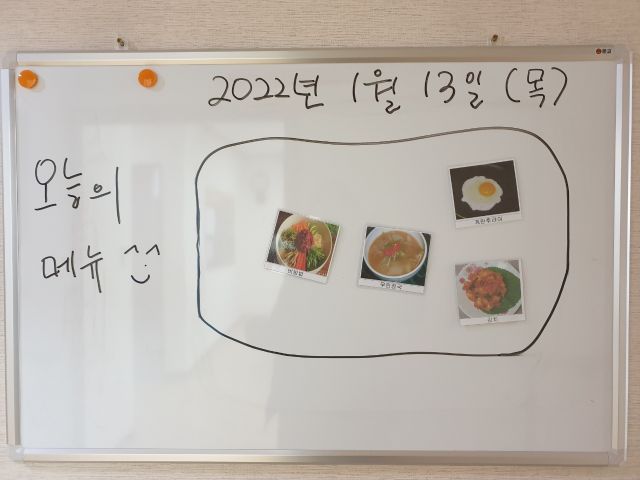 2022년 1월 13일 (목)
오늘의
메뉴 ^^
비빔밥
계란후라이
김치